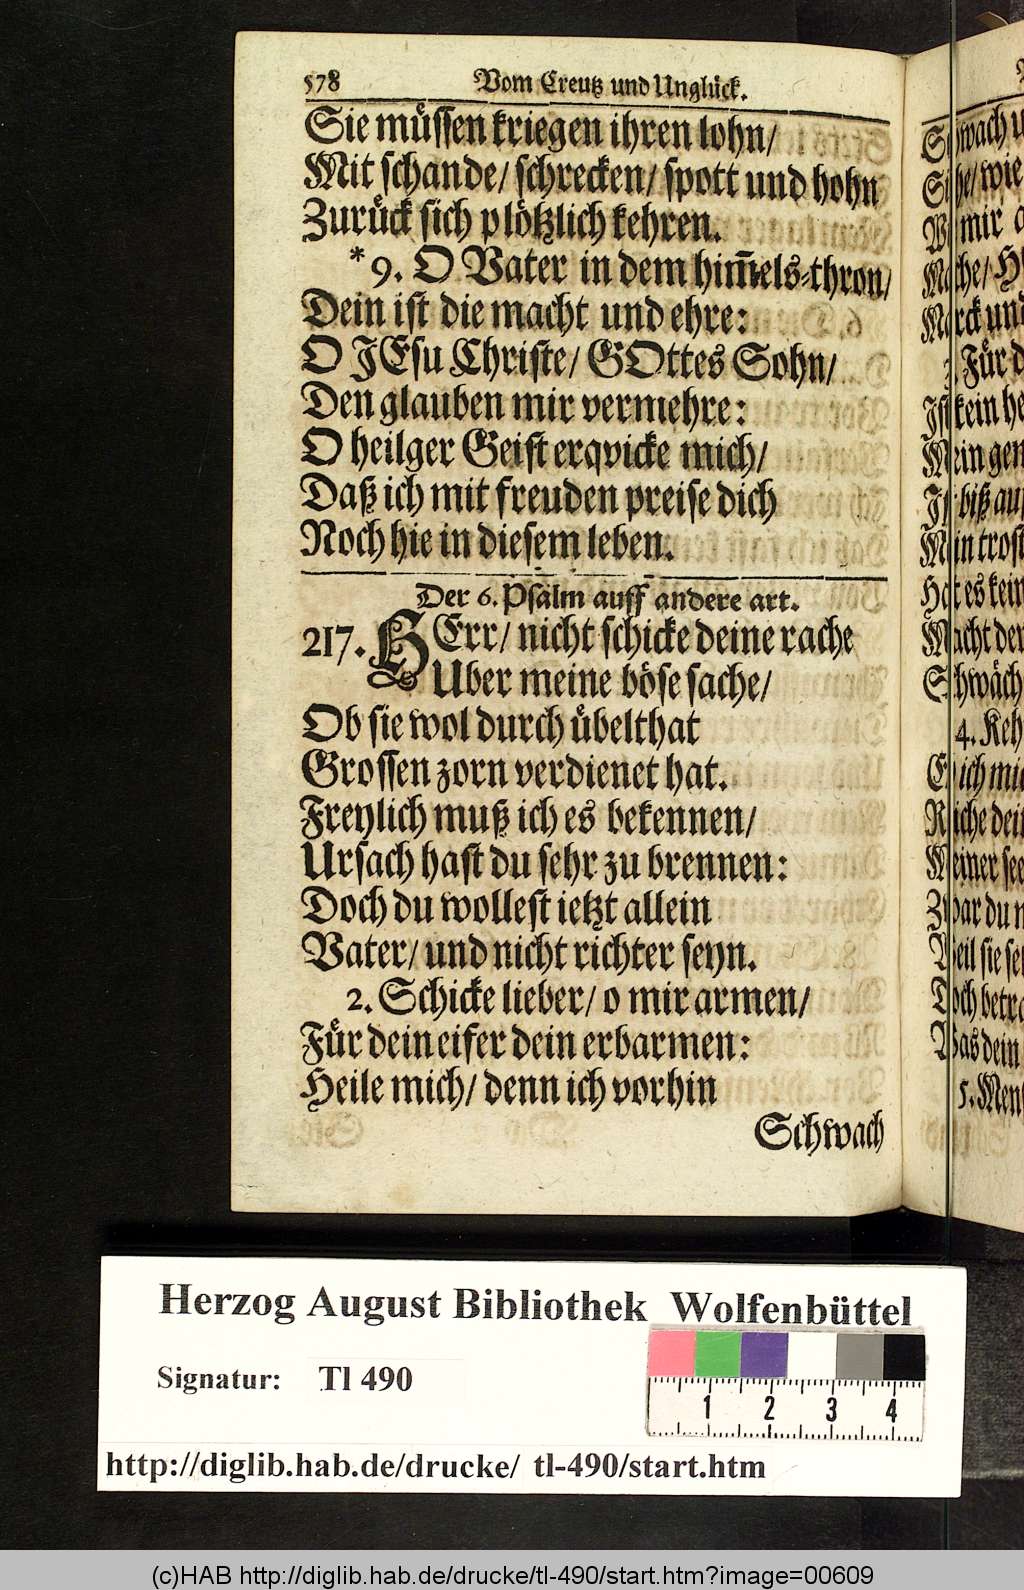 578 Vom Creutz und Unglück.
Sie müssen kriegen ihren lohn/
Mit schande/ schrecken/ spott und hohn
Zurück sich plötzlich kehren.
*9. O Vater in dem him̅els-thron/
Dein ist die macht und ehre:
O JEsu Christe/ GOttes Sohn/
Den glauben mir vermehre:
O heilger Geist erqvicke mich/
Daß ich mit freuden preise dich
Noch hie in diesem leben.
Der 6. Psalm auff andere art.
217. HErr/ nicht schicke deine rache
Uber meine böse sache/
Ob sie wol durch übelthat
Grossen zorn verdienet hat.
Freylich muß ich es bekennen/
Ursach hast du sehr zu brennen:
Doch du wollest ietzt allein
Vater/ und nicht richter seyn.
2. Schicke lieber/ o mir armen/
Für dein eifer dein erbarmen:
Heile mich/ denn ich vorhin
Schwach
Herzog August Bibliothek Wolfenbüttel
Signatur: Tl 490
1 2 3 4
http://diglib.hab.de/drucke/ tl-490/start.htm
(c)HAB http://diglib.hab.de/drucke/tl-490/start.htm?image=00609